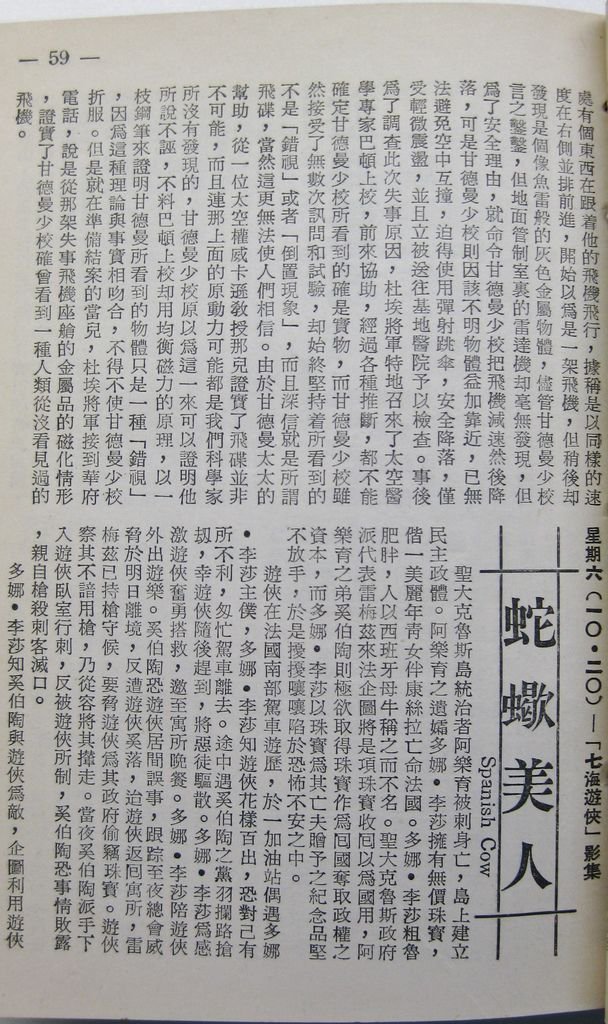 處有個東西在跟着他的飛機飛行，據稱是以同樣的速
度在右側並排前進，開始以爲是一架飛機，但稍後却
發現是個像魚雷般的灰色金屬物體，儘管甘德曼少校
言之鑿鑿，但地面管制室裏的雷達機却毫無發現，但
爲了安全理由，就命令甘德曼少校把飛機減速然後降
落，可是甘德曼少校則因該不明物體益加靠近，已無
法避免空中互撞，迫得使用彈射跳傘，安全降落，僅
受輕微震盪，並且立被送往基地醫院予以檢查。事後
爲了調查此次失事原因，杜埃將軍特地召來了太空醫
學專家巴頓上校，前來協助，經過各種推斷，都不能
確定甘德曼少校所看到的確是實物，而甘德曼少校雖
然接受了無數次訊問和試驗，却始終堅持着所看到的
不是「錯視」或者「倒置現象」，而且深信就是所謂
飛碟，當然這更無法使人們相信。由於甘德曼太太的
幫助，從一位太空權威卡遜教授那兒證實了飛碟並非
不可能，而且連那上面的原動力可能都是我們科學家
所沒有發現的，甘德曼少校原以爲這一來可以證明他
所說不誣，不料巴頓上校却用均衡磁力的原理，以一
枝鋼筆來證明甘德曼所看到的物體只是一種「錯視」
，因爲這種理論與事實相吻合，不得不使甘德曼少校
折服。但是就在準備結案的當兒，杜埃將軍接到華府
電話，說是從那架失事飛機座艙的金屬品的磁化情形
，證實了甘德曼少校確曾看到一種人類從沒看見過的
飛機。
星期六（一〇·二〇）—「七海遊俠」影集
蛇蠍美人
Spanish Cow
聖大克魯斯島統治者阿樂育被刺身亡，島上建立
民主政體。阿樂育之遺孀多娜·李莎擁有無價珠寶，
偕一美麗年青女伴康絲拉亡命法國。多娜·李莎粗魯
肥胖，人以西班牙母牛稱之而不名。聖大克魯斯政府
派代表雷梅茲來法企圖將是項珠寶收囘以爲國用，阿
樂育之弟奚伯陶則極欲取得珠寶作爲囘國奪取政權之
資本，而多娜·李莎以珠寶爲其亡夫贈予之紀念品堅
不放手，於是擾擾嚷嚷陷於恐怖不安之中。
遊俠在法國南部駕車遊歷，於一加油站偶遇多娜
·李莎主僕，多娜·李莎知遊俠花樣百出，恐對己有
所不利，匆忙駕車離去。途中遇奚伯陶之黨羽攔路搶
刼，幸遊俠隨後趕到，將惡徒驅散。多娜·李莎爲感
激遊俠奮勇搭救，邀至寓所晚餐。多娜·李莎陪遊俠
外出遊樂。奚伯陶恐遊俠居間誤事，跟踪至夜總會威
脅於明日離境，反遭遊俠奚落，迨遊俠返囘寓所，雷
梅茲已持槍守候，要脅遊俠爲其政府偷竊珠寶。遊俠
察其不諳用槍，乃從容將其攆走。當夜奚伯陶派手下
入遊俠臥室行刺，反被遊俠所制，奚伯陶恐事情敗露
，親自槍殺刺客滅口。
多娜·李莎知奚伯陶與遊俠爲敵，企圖利用遊俠
— 59 —